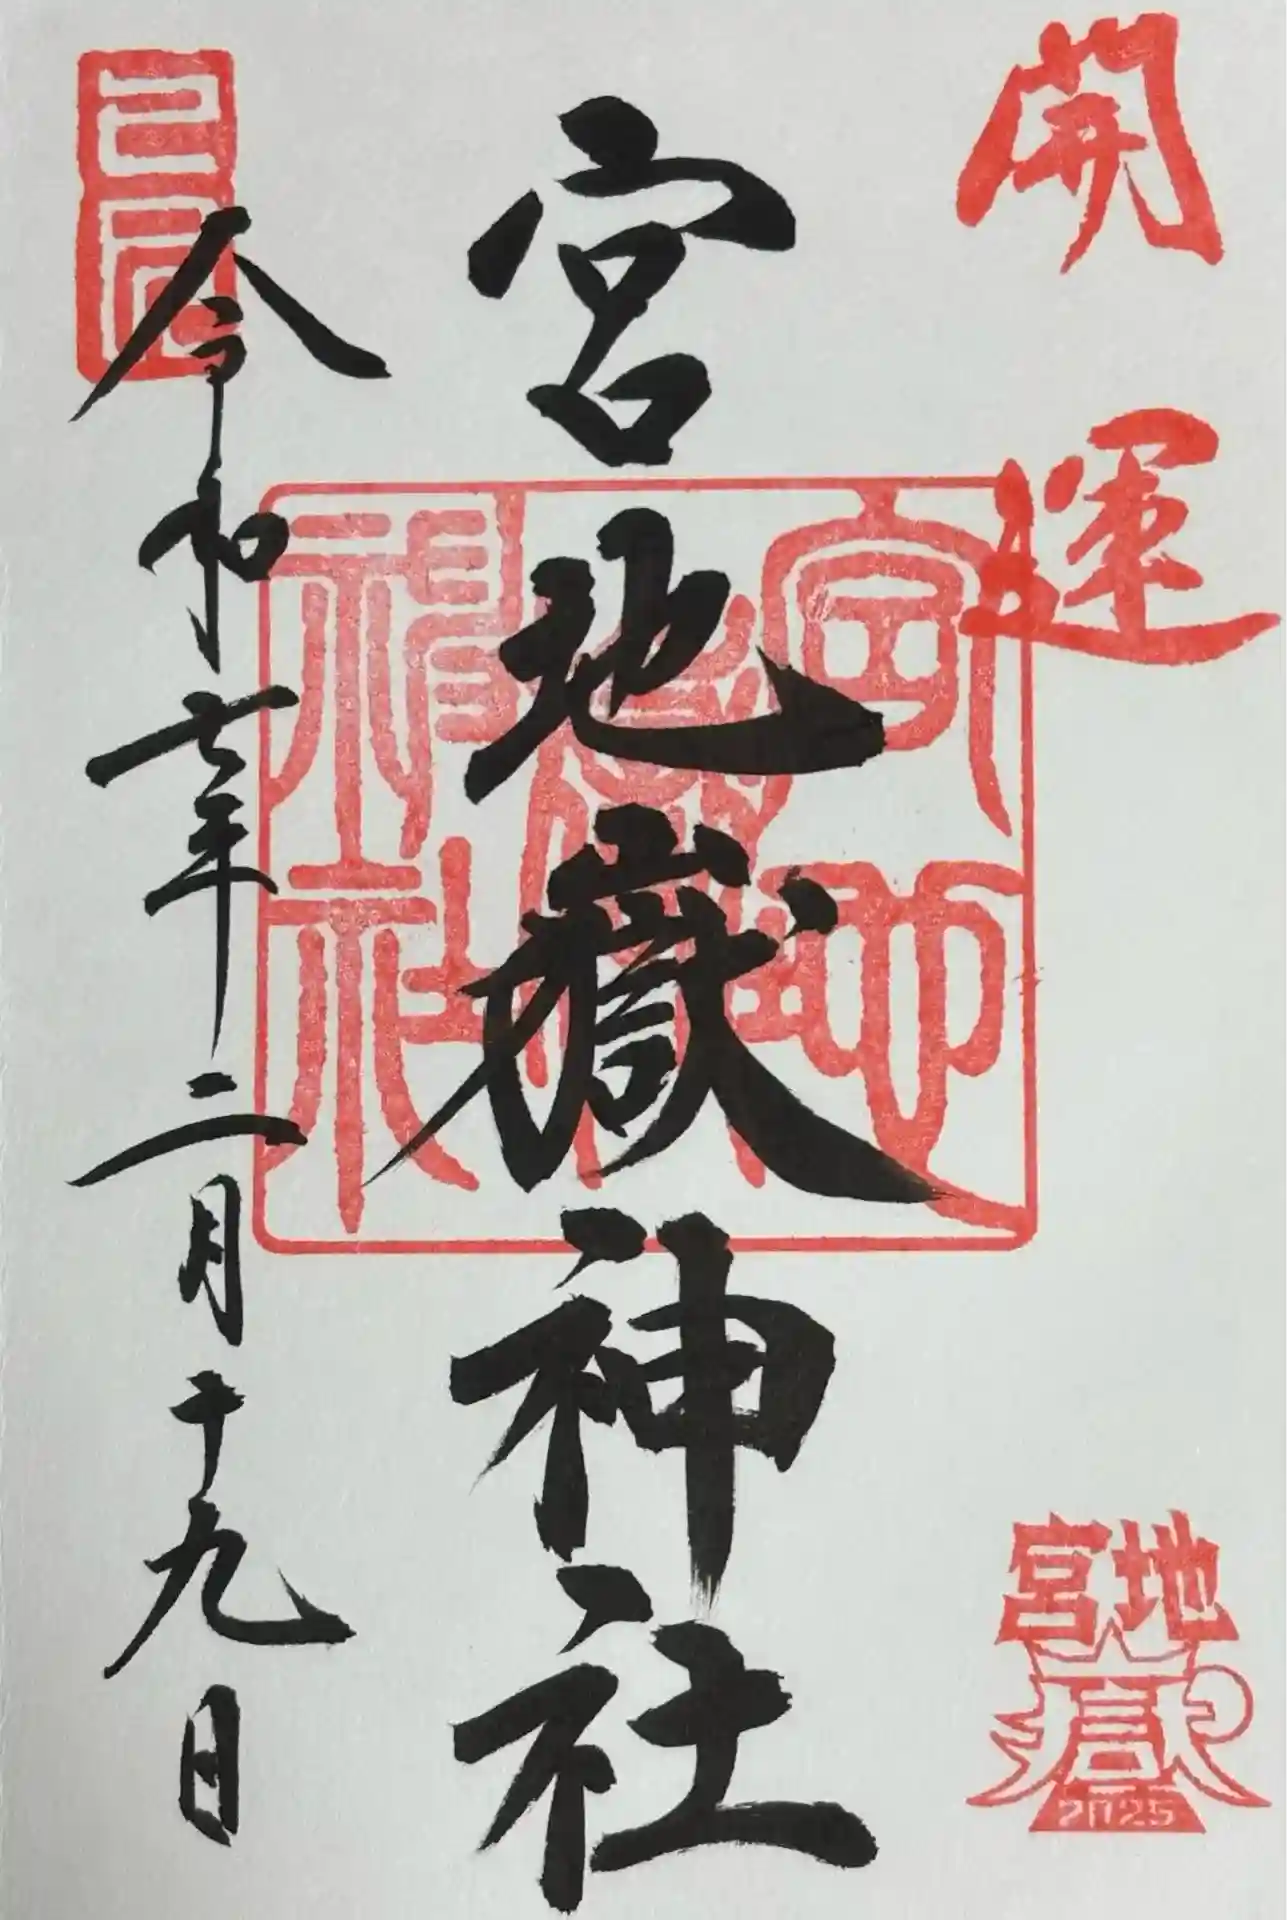 開運
宮地嶽
2025
宮地嶽神社
宮地嶽神社
令和七年二月十九日